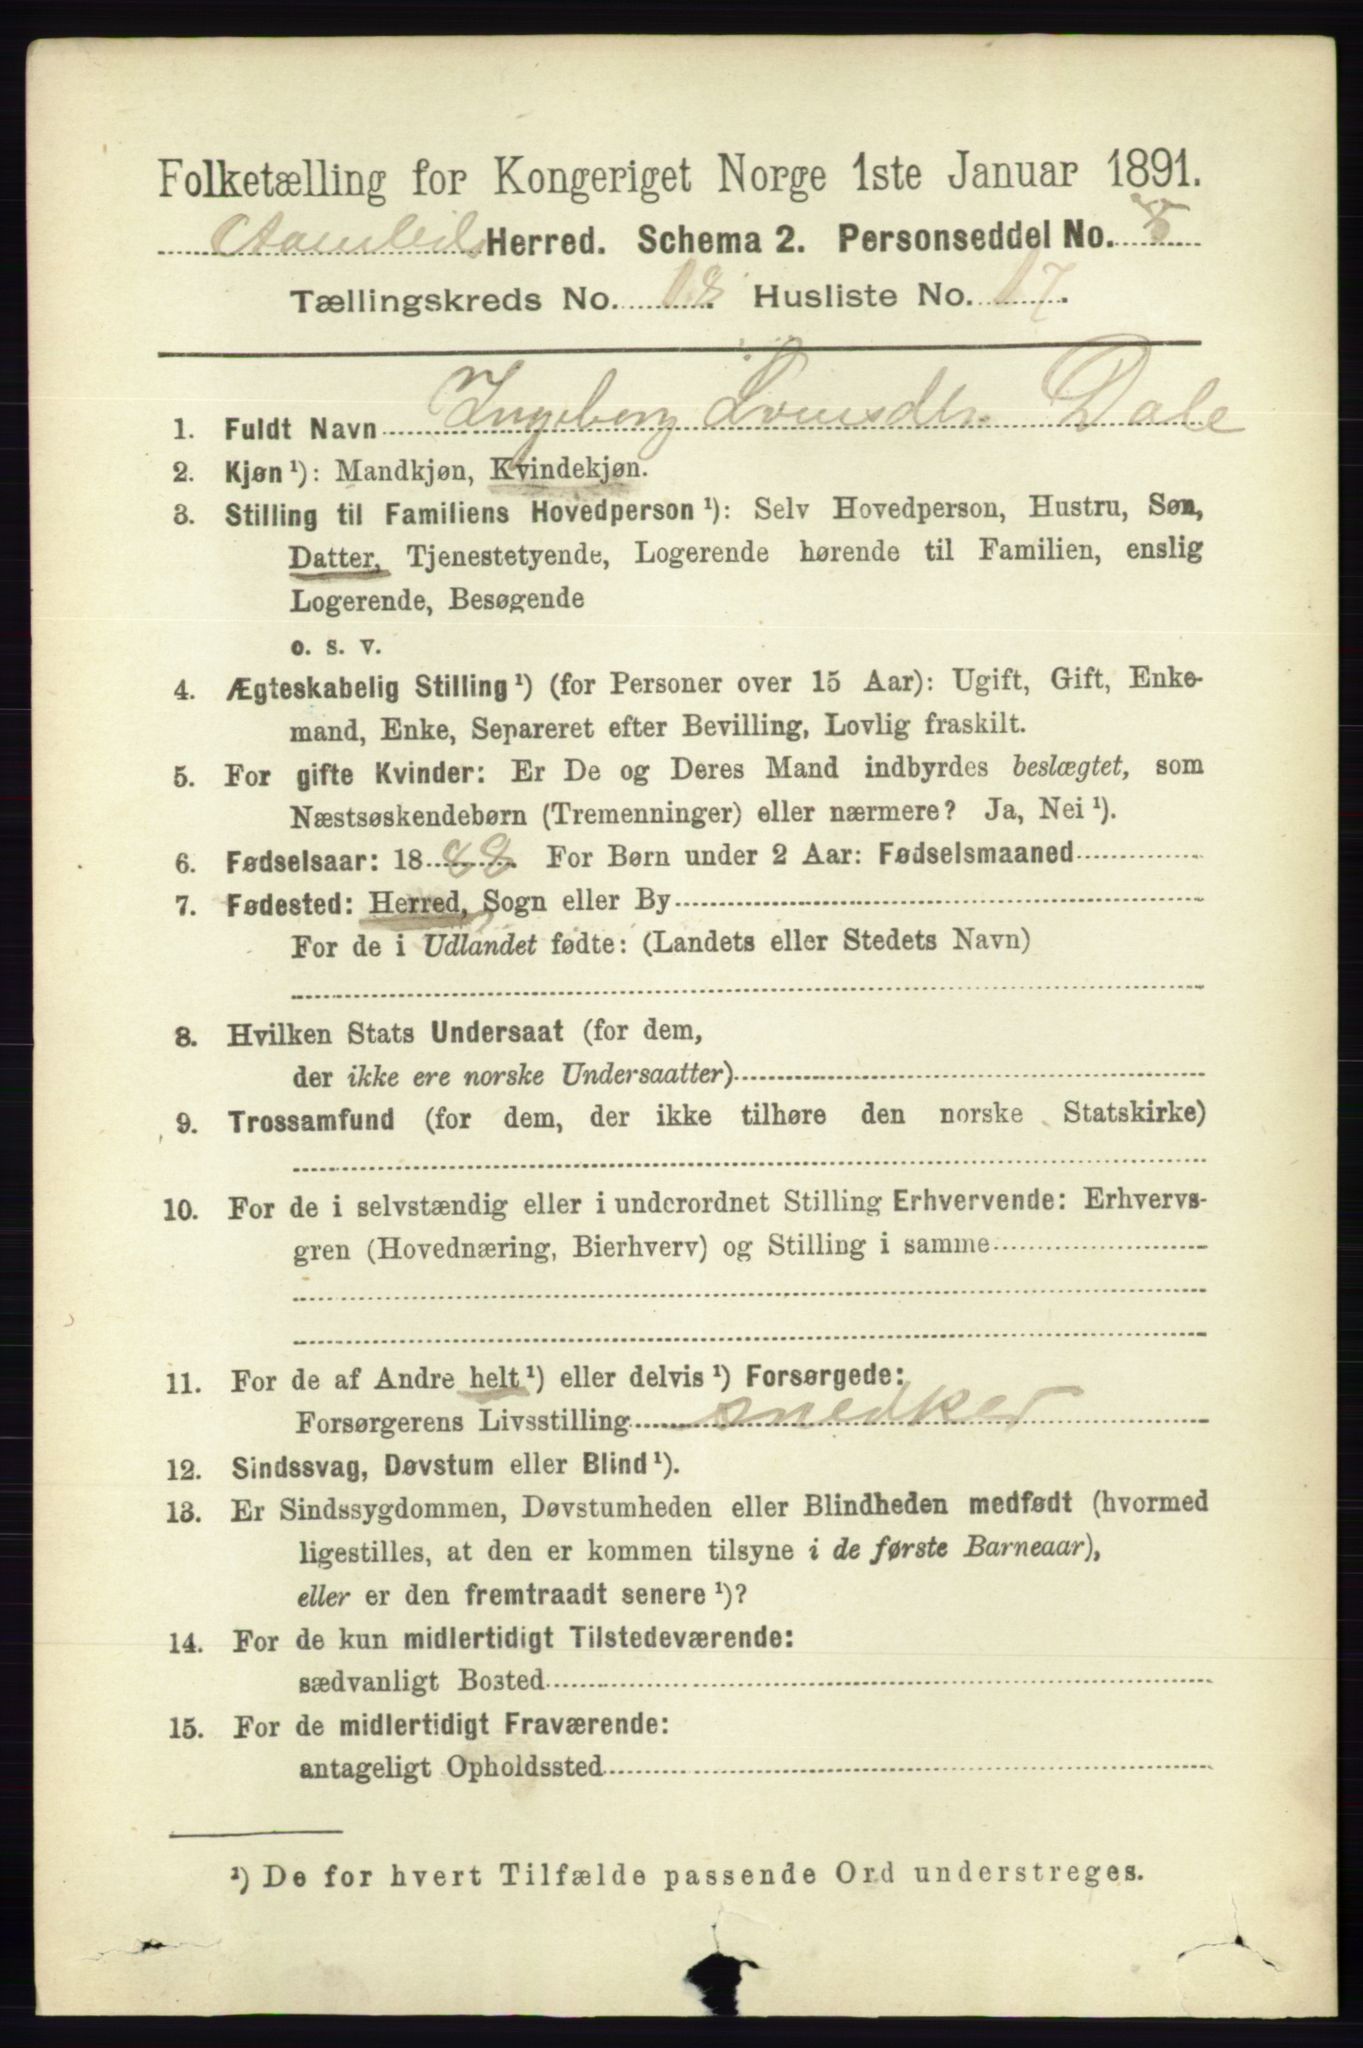 Folketælling for Kongeriget Norge 1ste Januar 1891.
Herred. Schema 2. Personseddel No. 8
Tællingskreds No. 13. Husliste No. 17.
1. Fuldt Navn Ingeborg Dale
2. Kjøn ¹): Mandkjøn, Kvindekjøn.
3. Stilling til Familiens Hovedperson ¹): Selv Hovedperson, Hustru, Søn,
Datter, Tjenestetyende, Logerende hørende til Familien, enslig
Logerende, Besøgende
o. s. v.
4. Ægteskabelig Stilling ¹) (for Personer over 15 Aar): Ugift, Gift, Enke-
mand, Enke, Separeret efter Bevilling, Lovlig fraskilt.
5. For gifte Kvinder: Er De og Deres Mand indbyrdes beslægtet, som
Næstsøskendebørn (Tremenninger) eller nærmere? Ja, Nei ¹).
6. Fødselsaar: 1888. For Børn under 2 Aar: Fødselsmaaned
7. Fødested: Herred, Sogn eller By
For de i Udlandet fødte: (Landets eller Stedets Navn)
8. Hvilken Stats Undersaat (for dem,
der ikke ere norske Undersaatter)
9. Trossamfund (for dem, der ikke tilhøre den norske Statskirke)
10. For de i selvstændig eller i underordnet Stilling Erhvervende: Erhvervs-
gren (Hovednæring, Bierhverv) og Stilling i samme
11. For de af Andre helt ¹) eller delvis ¹) Forsørgede:
Forsørgerens Livsstilling snedker
12. Sindssvag, Døvstum eller Blind ¹).
13. Er Sindssygdommen, Døvstumheden eller Blindheden medfødt (hvormed
ligestilles, at den er kommen tilsyne i de første Barneaar),
eller er den fremtraadt senere ¹)?
14. For de kun midlertidigt Tilstedeværende:
sædvanligt Bosted
15. For de midlertidigt Fraværende:
antageligt Opholdssted
¹) De for hvert Tilfælde passende Ord understreges.